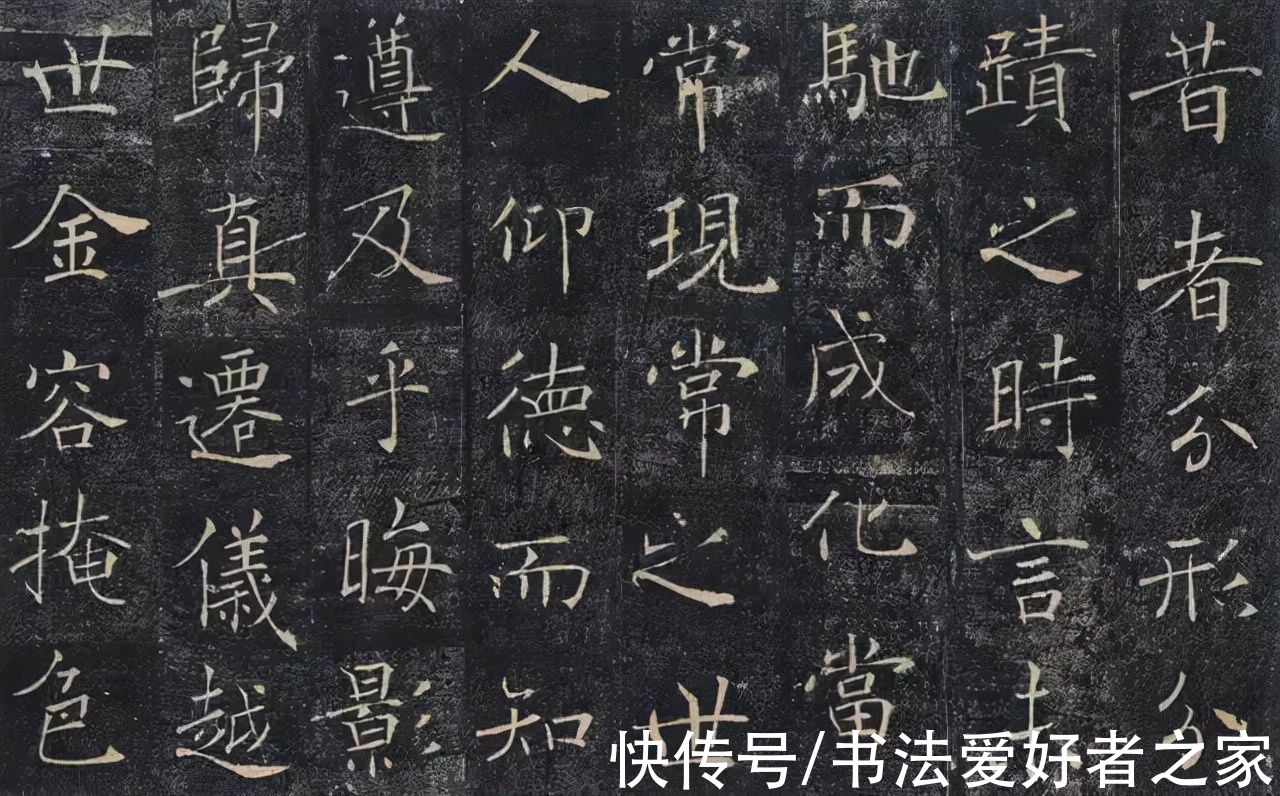 昔者分形分
蹟之時言未
馳而成化當
常現常之世
人仰德而知
遵及乎晦影
歸真遷儀越
世金容掩色
快传号/书法爱好者之家